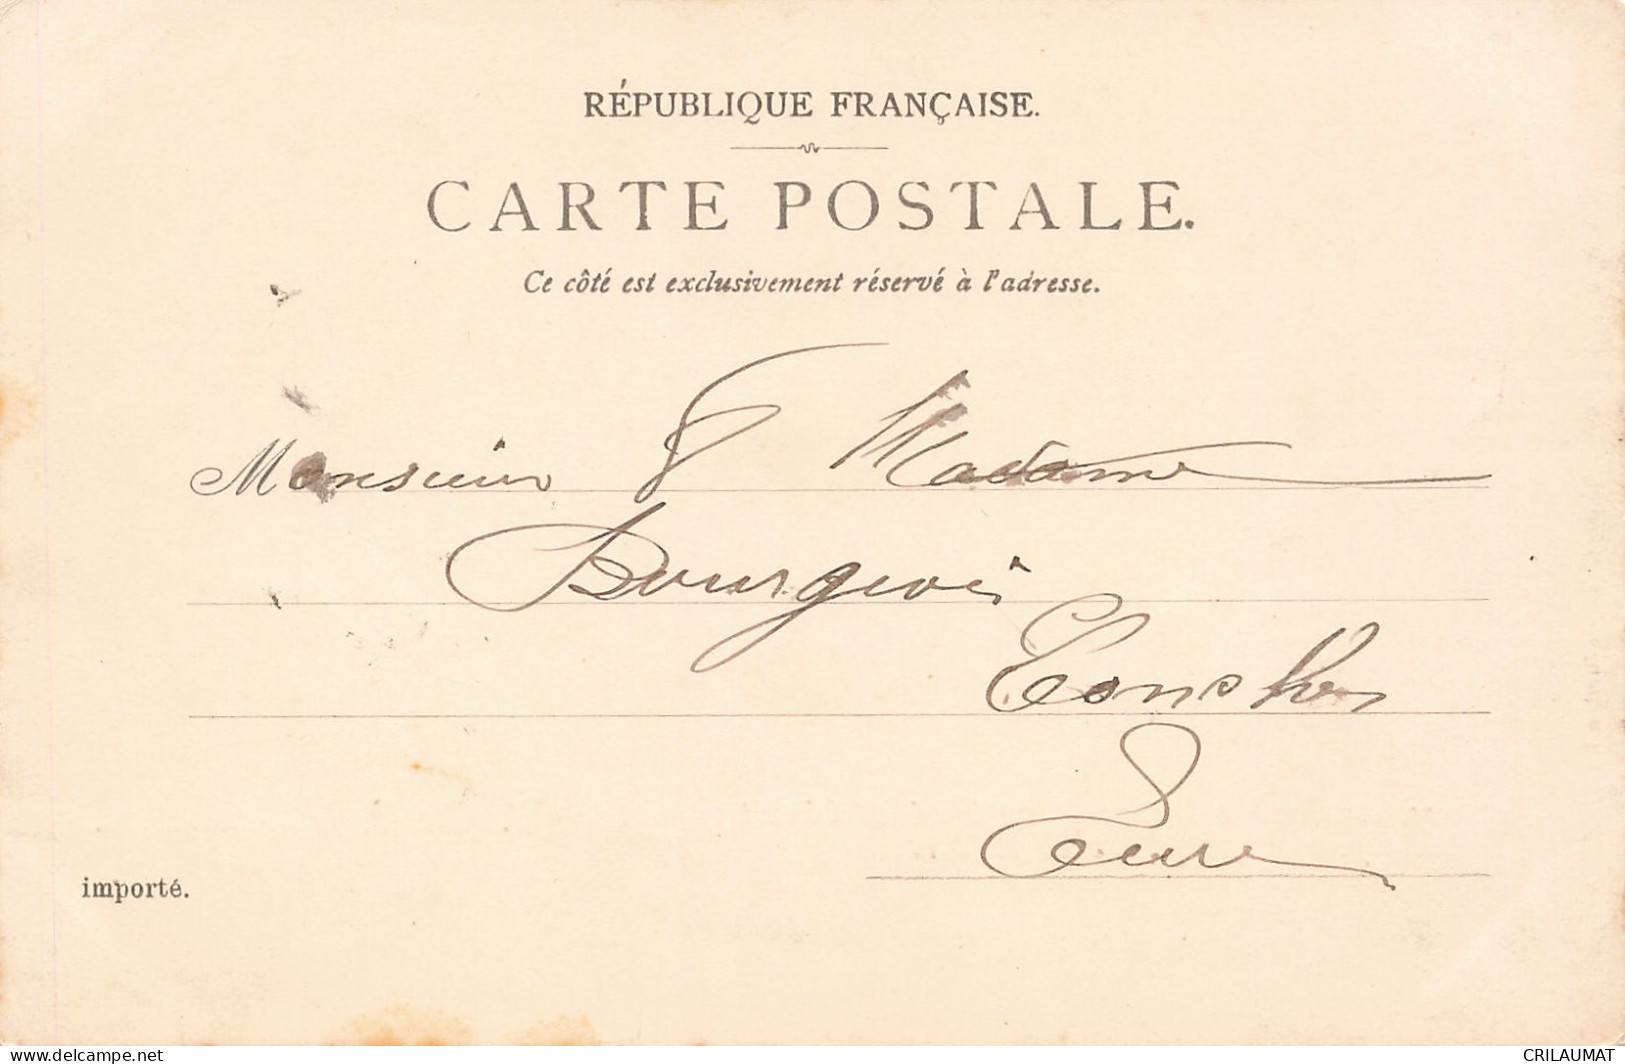 RÉPUBLIQUE FRANÇAISE.
CARTE POSTALE.
Ce côté est exclusivement réservé à l'adresse.
Monsieur & Madame
Bourgeois
Conches
Eure
importé.
www.delcampe.net
CRILAUMAT